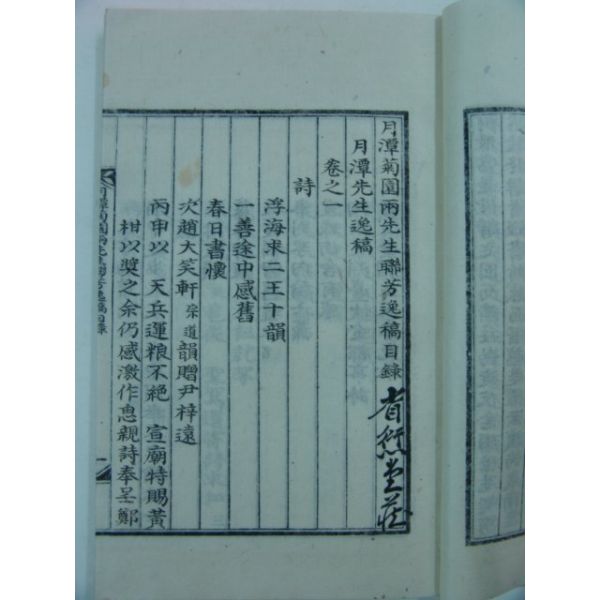 月潭菊園兩先生聯芳逸稿目錄
月潭先生逸稿
卷之一
詩
浮海來二王十韻
一善途中感舊
春日書懷
次趙大笑軒宗道韻贈尹梓遠
丙申以 天兵運粮不絶 宣廟特賜黃
柑以奬之余仍感激作惠親詩奉呈鄭
月潭菊園兩先生聯芳逸稿目錄